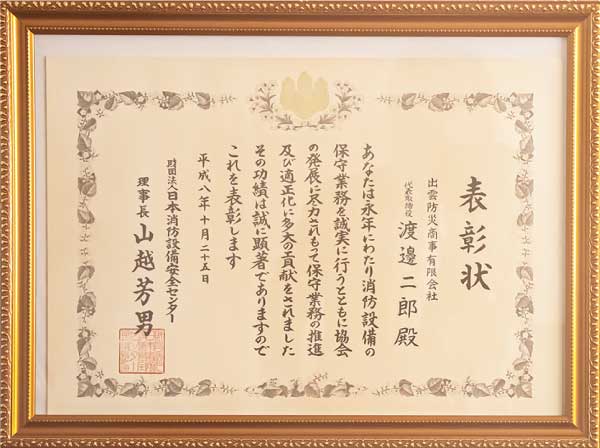 表彰状
出雲防災商事有限会社
代表取締役 渡邉二郎殿
あなたは永年にわたり消防設備の
保守業務を誠実に行うとともに協会
の発展に尽力されもって保守業務の推進
及び適正化に多大の貢献をされました
その功績は誠に顕著でありますので
これを表彰します
平成八年十月二十五日
財団法人日本消防設備安全センター
理事長 山越芳男